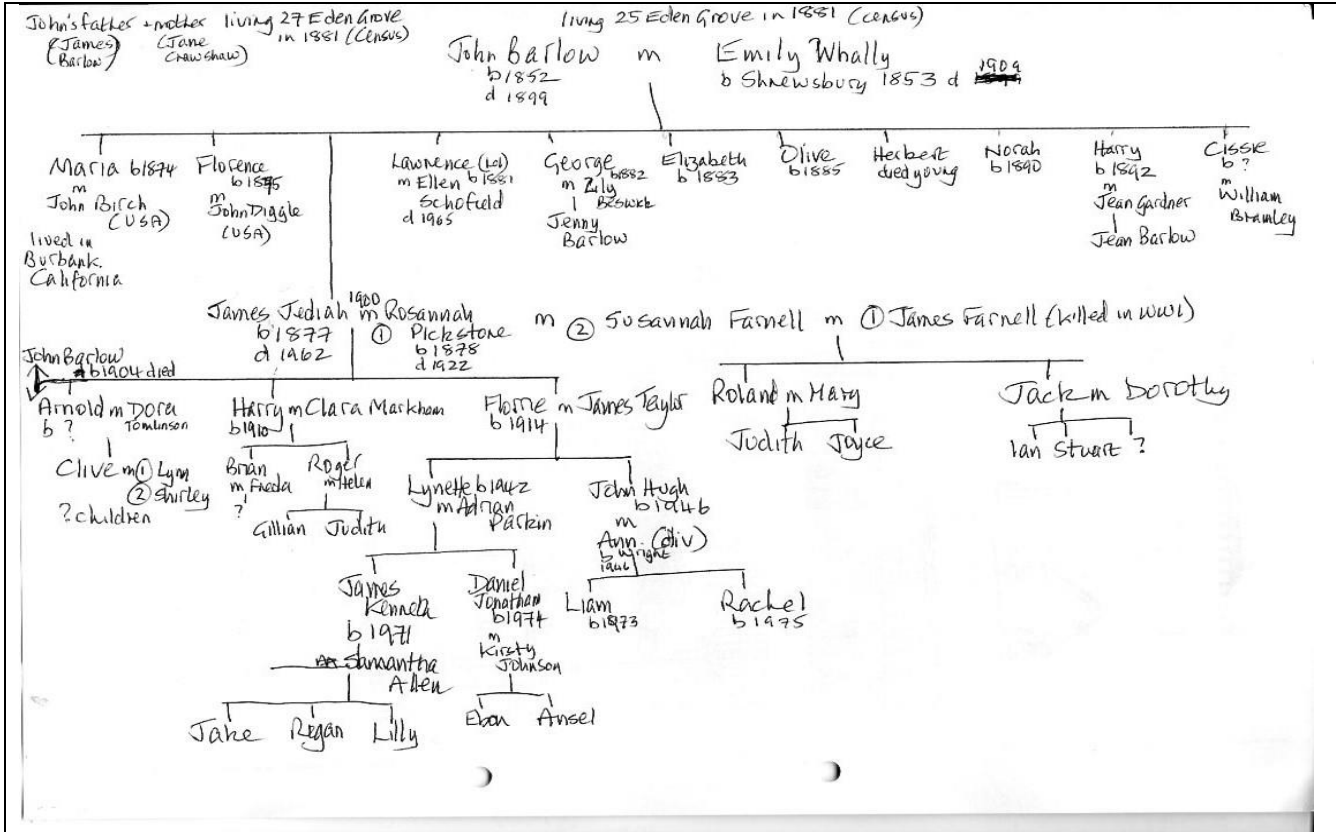 John's father + mother living 27 Eden Grove
(James Barlow) (Jane Crawshaw) in 1881 (Census)
living 25 Eden Grove in 1881 (census)
John Barlow m Emily Whally
b 1852 b Shrewsbury 1853 d 1909
d 1899
Maria b1874
m
John Birch
(USA)
lived in
Burbank.
California
Florence
b 1875
m
John Diggle
(USA)
Lawrence (Lol)
m Ellen b 1881
Schofield
d 1965
George b1882
m Lily
Beswick
Jenny
Barlow
Elizabeth
b 1883
Olive
b1885
Herbert
died young
Norah
b 1890
Harry
b 1892
m
Jean Gardner
Jean Barlow
Cissie
b ?
m
William
Bramley
James Jediah 1900 m Rosannah
b 1877 ① Pickstone
d 1962 b 1878
d 1922
m ② Susannah Farnell m ① James Farnell (killed in WW1)
John Barlow
b1904 died
Arnold m Dora
b ? Tomlinson
Clive m ① Lynn
② Shirley
? children
Harry m Clara Markham
b1910
Brian
m Freda
?
Roger
m Helen
Gillian Judith
Florrie m James Taylor
b 1914
Lynette b1942
m Adrian
Parkin
John Hugh
b 1946
m
Ann (div)
b Wright
1946
James
Kenneth
b 1971
Samantha
Allen
Jake Regan Lilly
Daniel
Jonathan
b 1974
m
Kirsty
Johnson
Eban Ansel
Liam
b 1973
Rachel
b 1975
Roland m Mary
Judith Joyce
Jack m Dorothy
Ian Stuart ?